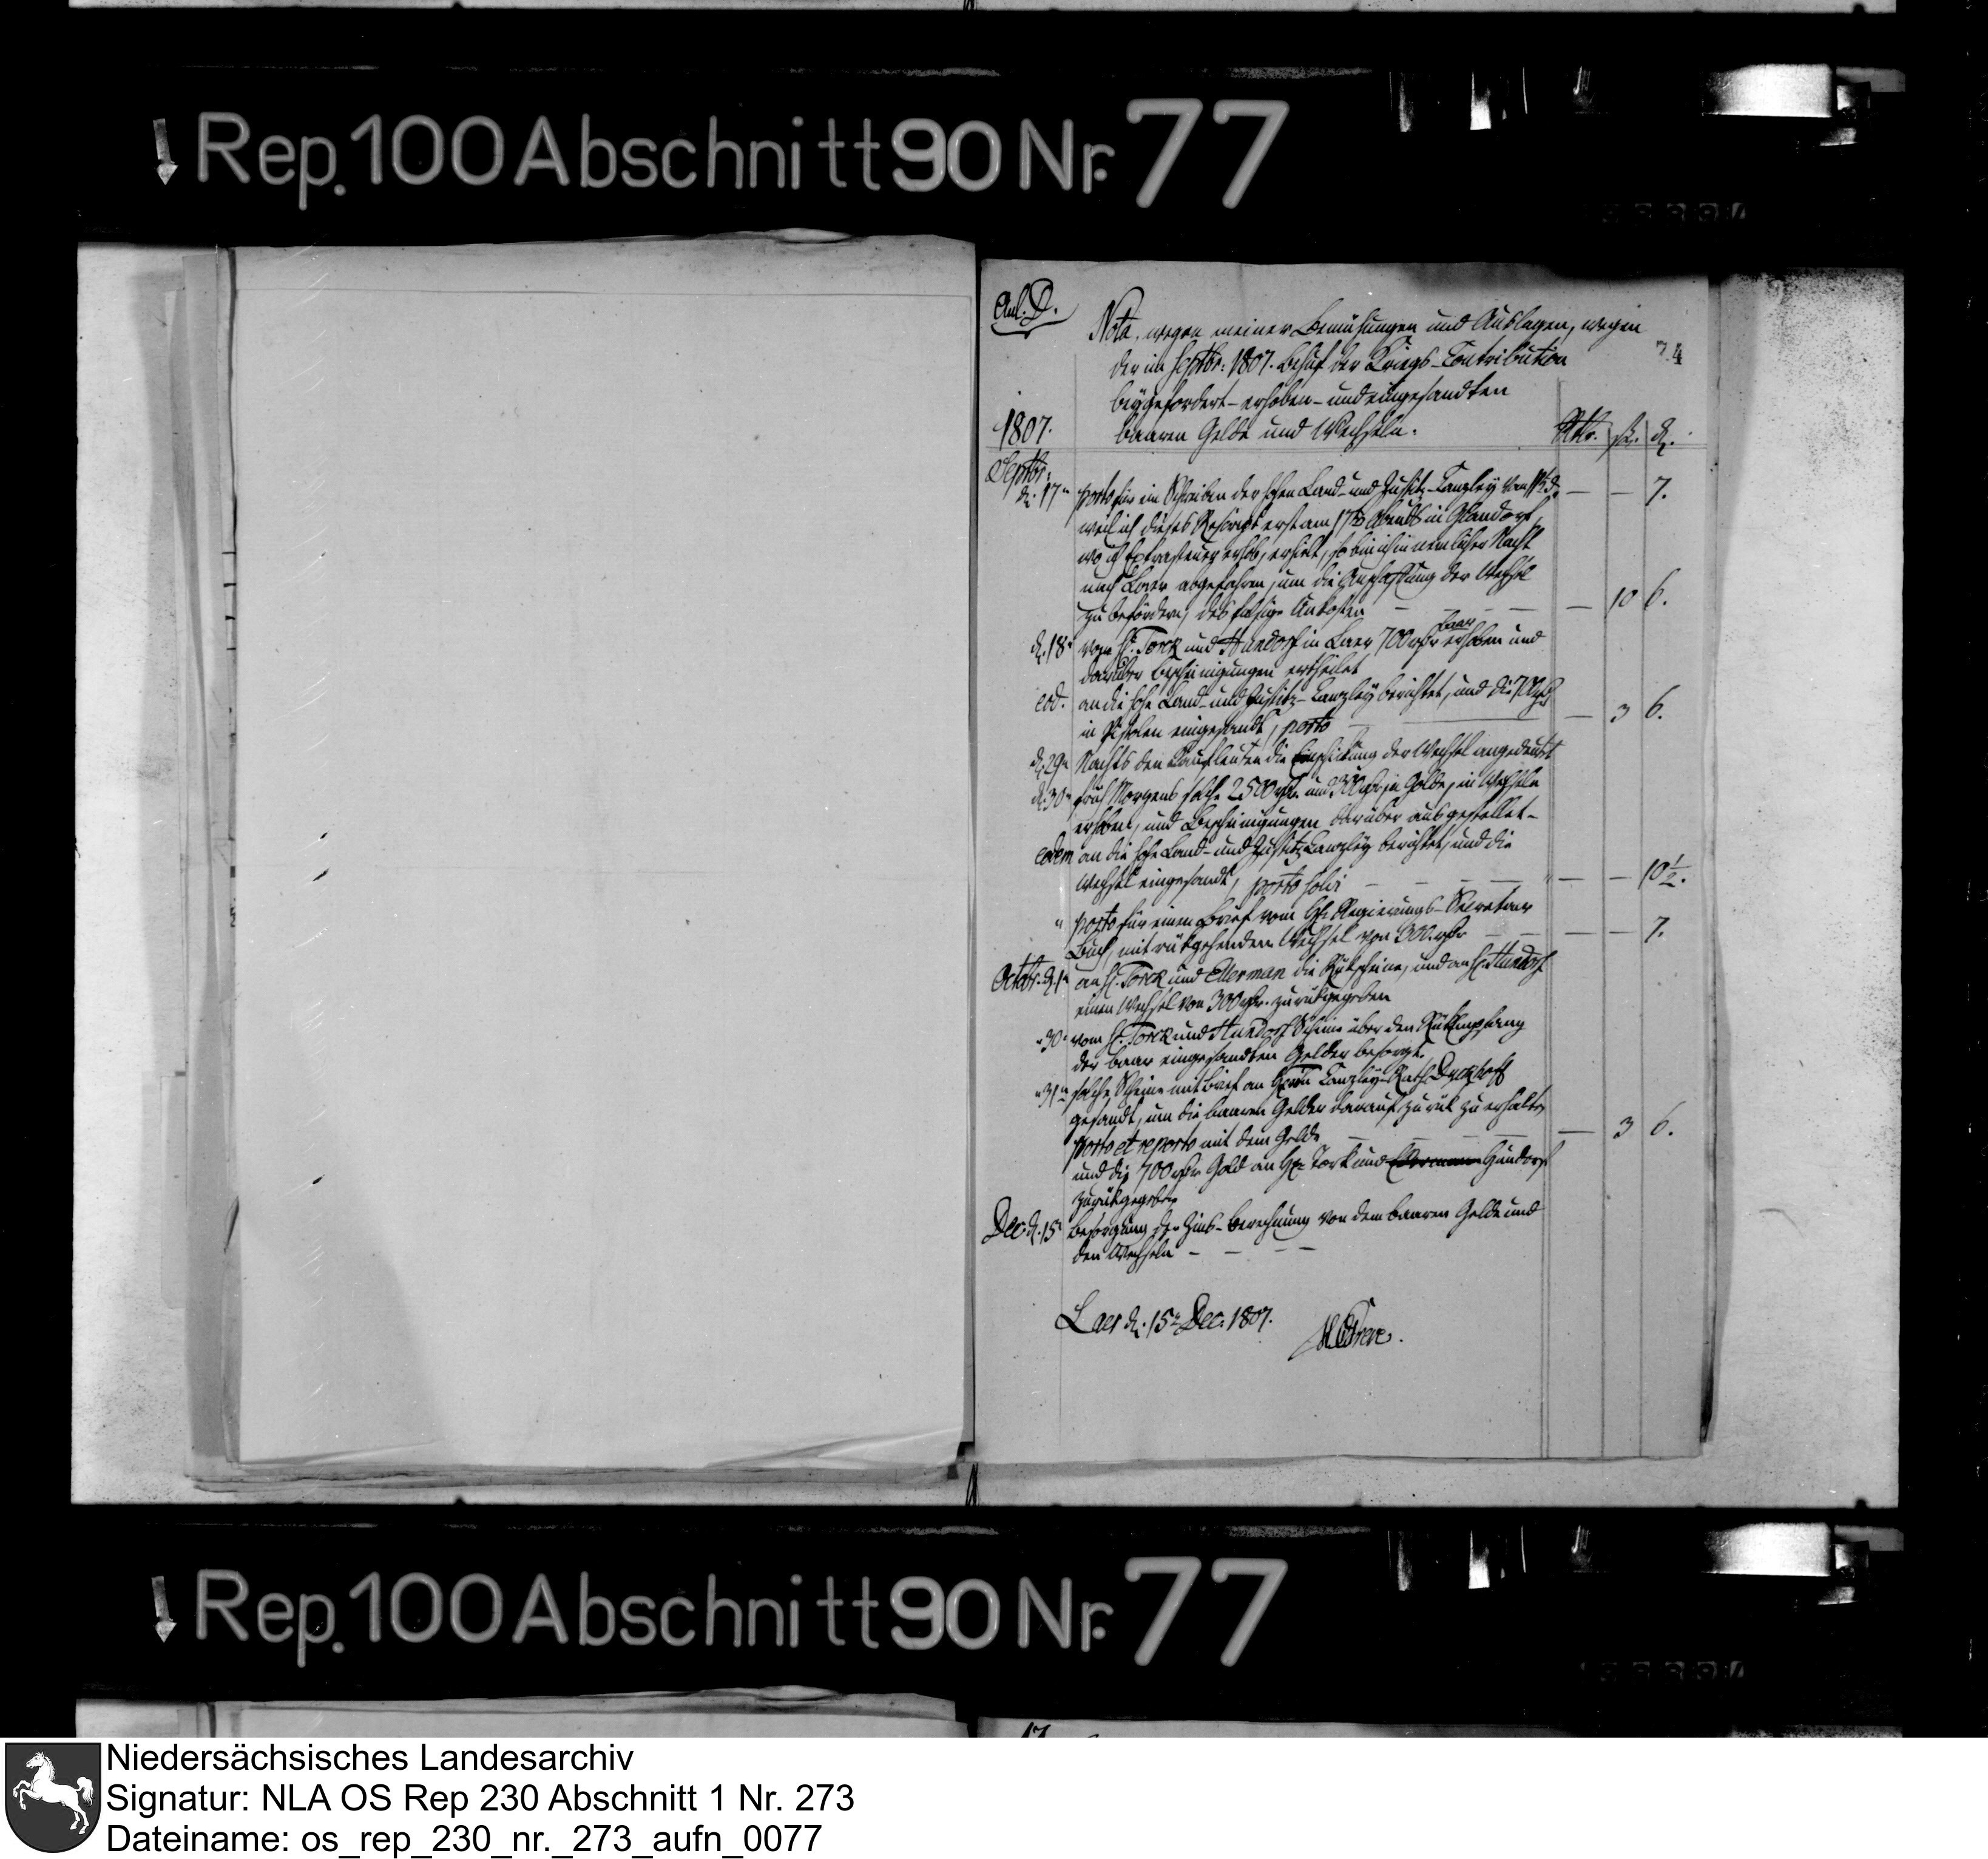 Rep. 100 Abschnitt 90 Nr. 77
Anl. D.
Nota, wegen meiner Bemühungen und Auslagen, wegen
der im Septbr: 1807. behuf der Kriegs-Contribution
beygefordert- erhoben- und eingesandten
baaren Gelde und Wechseln.
74
1807.
Rthr. ß. d.
Septbr:
d. 17n porto für ein Schreiben der hohen Land- und Justitz-Canzley vom — — 7.
weil ich dieses Rescript erst am 17ten Abends in Glandorf,
wo ich Extrasteuer erhob, erhielt, so bin ich in nemlicher Nacht
nach Laer abgefahren, um die Anschaffung der Wechsel
zu befördern, desfalsige Unkosten — — — 10 6.
d. 18n vom H. Torck und Hundorf in Laer 700 rthr baar erhoben und
darüber Bescheinigungen ertheilet
eod. an die hohe Land- und Justitz-Canzley berichtet, und die 700 rthr
in Pistolen eingesandt, porto — — 3 6.
d. 29n Nachts den Kaufleuten die der Wechsel angedeutet
d. 30n früh Morgens solche 2500 rthr. und 300 rthr in Golde, in Wechseln
erhoben, und Bescheinigungen darüber ausgestellet-
eodem an die hohe Land- und Justitz Canzley berichtet, und die
Wechsel eingesandt, porto solvi — — — — 10 1/2.
" porto für einen Brief vom H. Regierungs-Secretair
Buch, mit rükgehenden Wechsel von 300. rthr — — — — 7.
Octobr. d. 1n an H. Torck und Ellerman die Rükscheine, und an H. Hundorf
einen Wechsel von 300 rthr. zurükgegeben
" 30n vom H. Torck und Hundorf Scheine über den Rükempfang
der baar eingesandten Gelder besorgt.
" 31n solche Scheine mit Brief an Herrn Canzley-Rath Dyckhoff
gesandt, um die baaren Gelder darauf zurük zu erhalten
porto et reporto mit dem Gelde — — — 3 6.
und die 700 rthr Gold an H. Torck und Hundorf
zurükgegeben
Dec. d. 15n Besorgung der Zins-Berechnung von dem baaren Gelde und
den Wechseln — — — —
Laer d. 15n Dec. 1807.
Rep. 100 Abschnitt 90 Nr. 77
Niedersächsisches Landesarchiv
Signatur: NLA OS Rep 230 Abschnitt 1 Nr. 273
Dateiname: os_rep_230_nr._273_aufn_0077